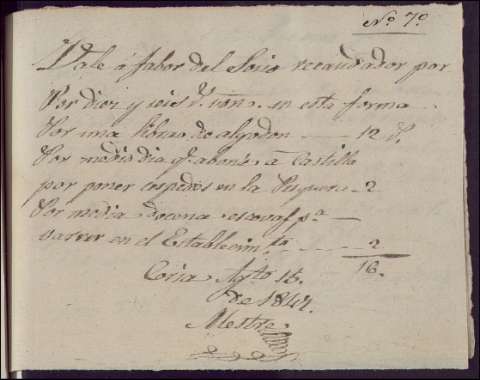 No. 7o.
Vale á fabor del Socio recaudador por
Por diez y seis rs. von. en esta forma
Por una libra de algodon 12 rs.
Por medio dia qe. abone a Castilla
por poner cespedes en la Pesquera 2
Por media docena escovas pa.
varrer en el Establecimto. 2
16.
Coria Agto. 15.
de 1847.
Mestre.